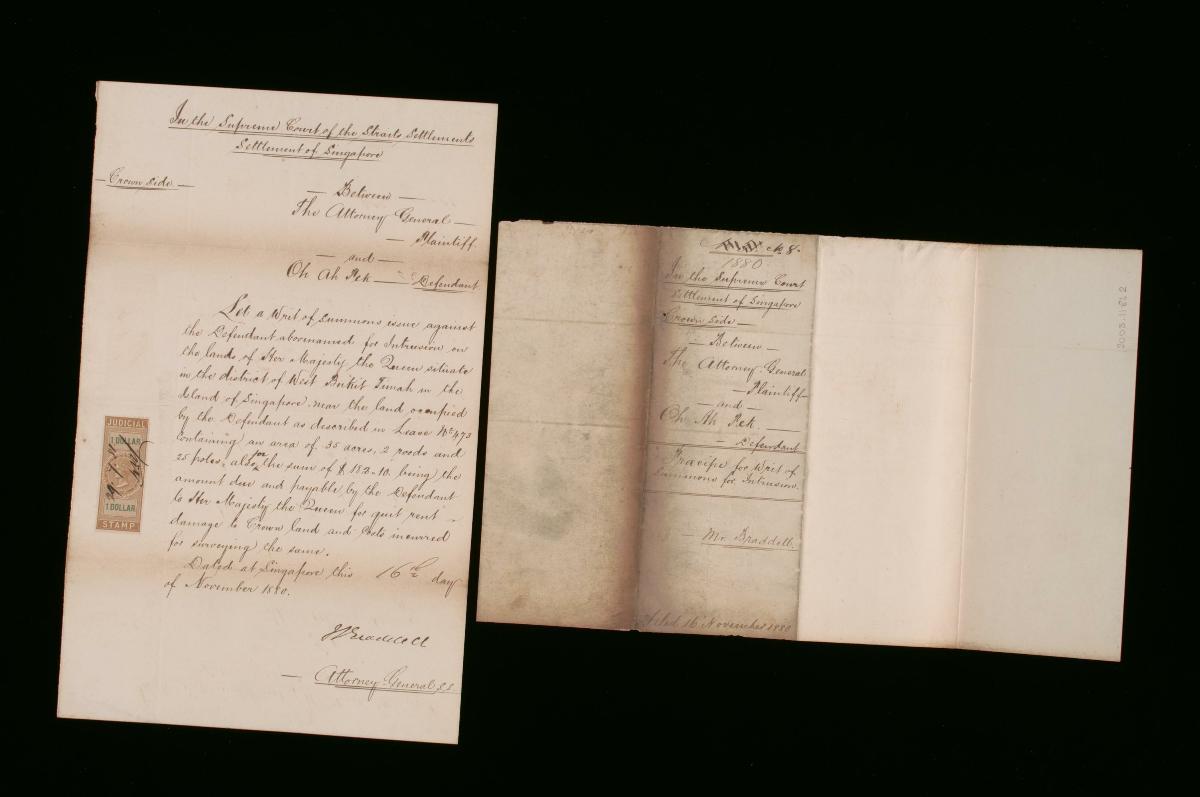 In the Supreme Court of the Straits Settlements
Settlement of Singapore
— Crown Side —
— Between —
The Attorney General —
— Plaintiff
— and —
Oh Ah Pek — Defendant
Let a Writ of Summons issue against
the Defendant abovenamed for Intrusion on
the lands of Her Majesty the Queen situate
in the district of West Bukit Timah in the
Island of Singapore near the land occupied
by the Defendant as described in Lease No 473
Containing an area of 35 acres, 2 roods and
25 poles, also for the sum of $ 182.10. being the
amount due and payable by the Defendant
to Her Majesty the Queen for quit rent –
damage to Crown land and Costs incurred
for surveying the same.
Dated at Singapore this 16th day
of November 1880.
JUDICIAL
1 DOLLAR
1 DOLLAR
STAMP
TBraddell
— Attorney General, S.S.
8.
1880
In the Supreme Court
Settlement of Singapore
Crown Side —
— Between —
The Attorney General
— Plaintiff
— and —
Oh Ah Pek. —
— Defendant
Præcipe for Writ of
Summons for Intrusion.
— Mr. Braddell.
Filed 16 November 1880